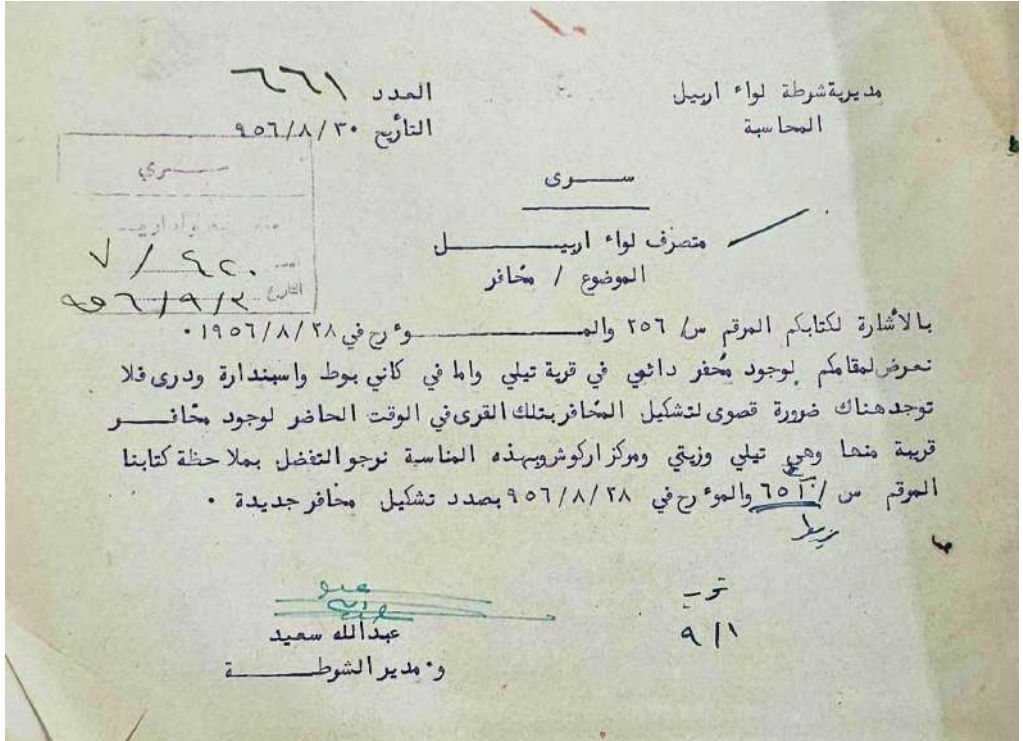 مديرية شرطة لواء اربيل
المحاسبة
العدد ٦٦١
التأريخ ٩٥٦/٨/٣٠
سرى
سري
٧ / ٤٢٠
التاريخ ٩٥٦/٩/٣
متصرف لواء اربيل
الموضوع / مخافر
بالأشارة لكتابكم المرقم س/ ٢٥٦ والمؤرخ في ١٩٥٦/٨/٢٨ ٠
نعرض لمقامكم لوجود مخفر دائمي في قرية تيلي واما في كاني بوط واسبندارة ودرى فلا
توجد هناك ضرورة قصوى لتشكيل المخافر بتلك القرى في الوقت الحاضر لوجود مخافر
قريبة منها وهي تيلي وزيتي ومركز اركوش وبهذه المناسبة نرجو التفضل بملاحظة كتابنا
المرقم س / ٦٥٢ والمؤرخ في ٩٥٦/٨/٢٨ بصدد تشكيل مخافر جديدة ٠
٩/١
عبدالله سعيد
و٠ مدير الشرطة